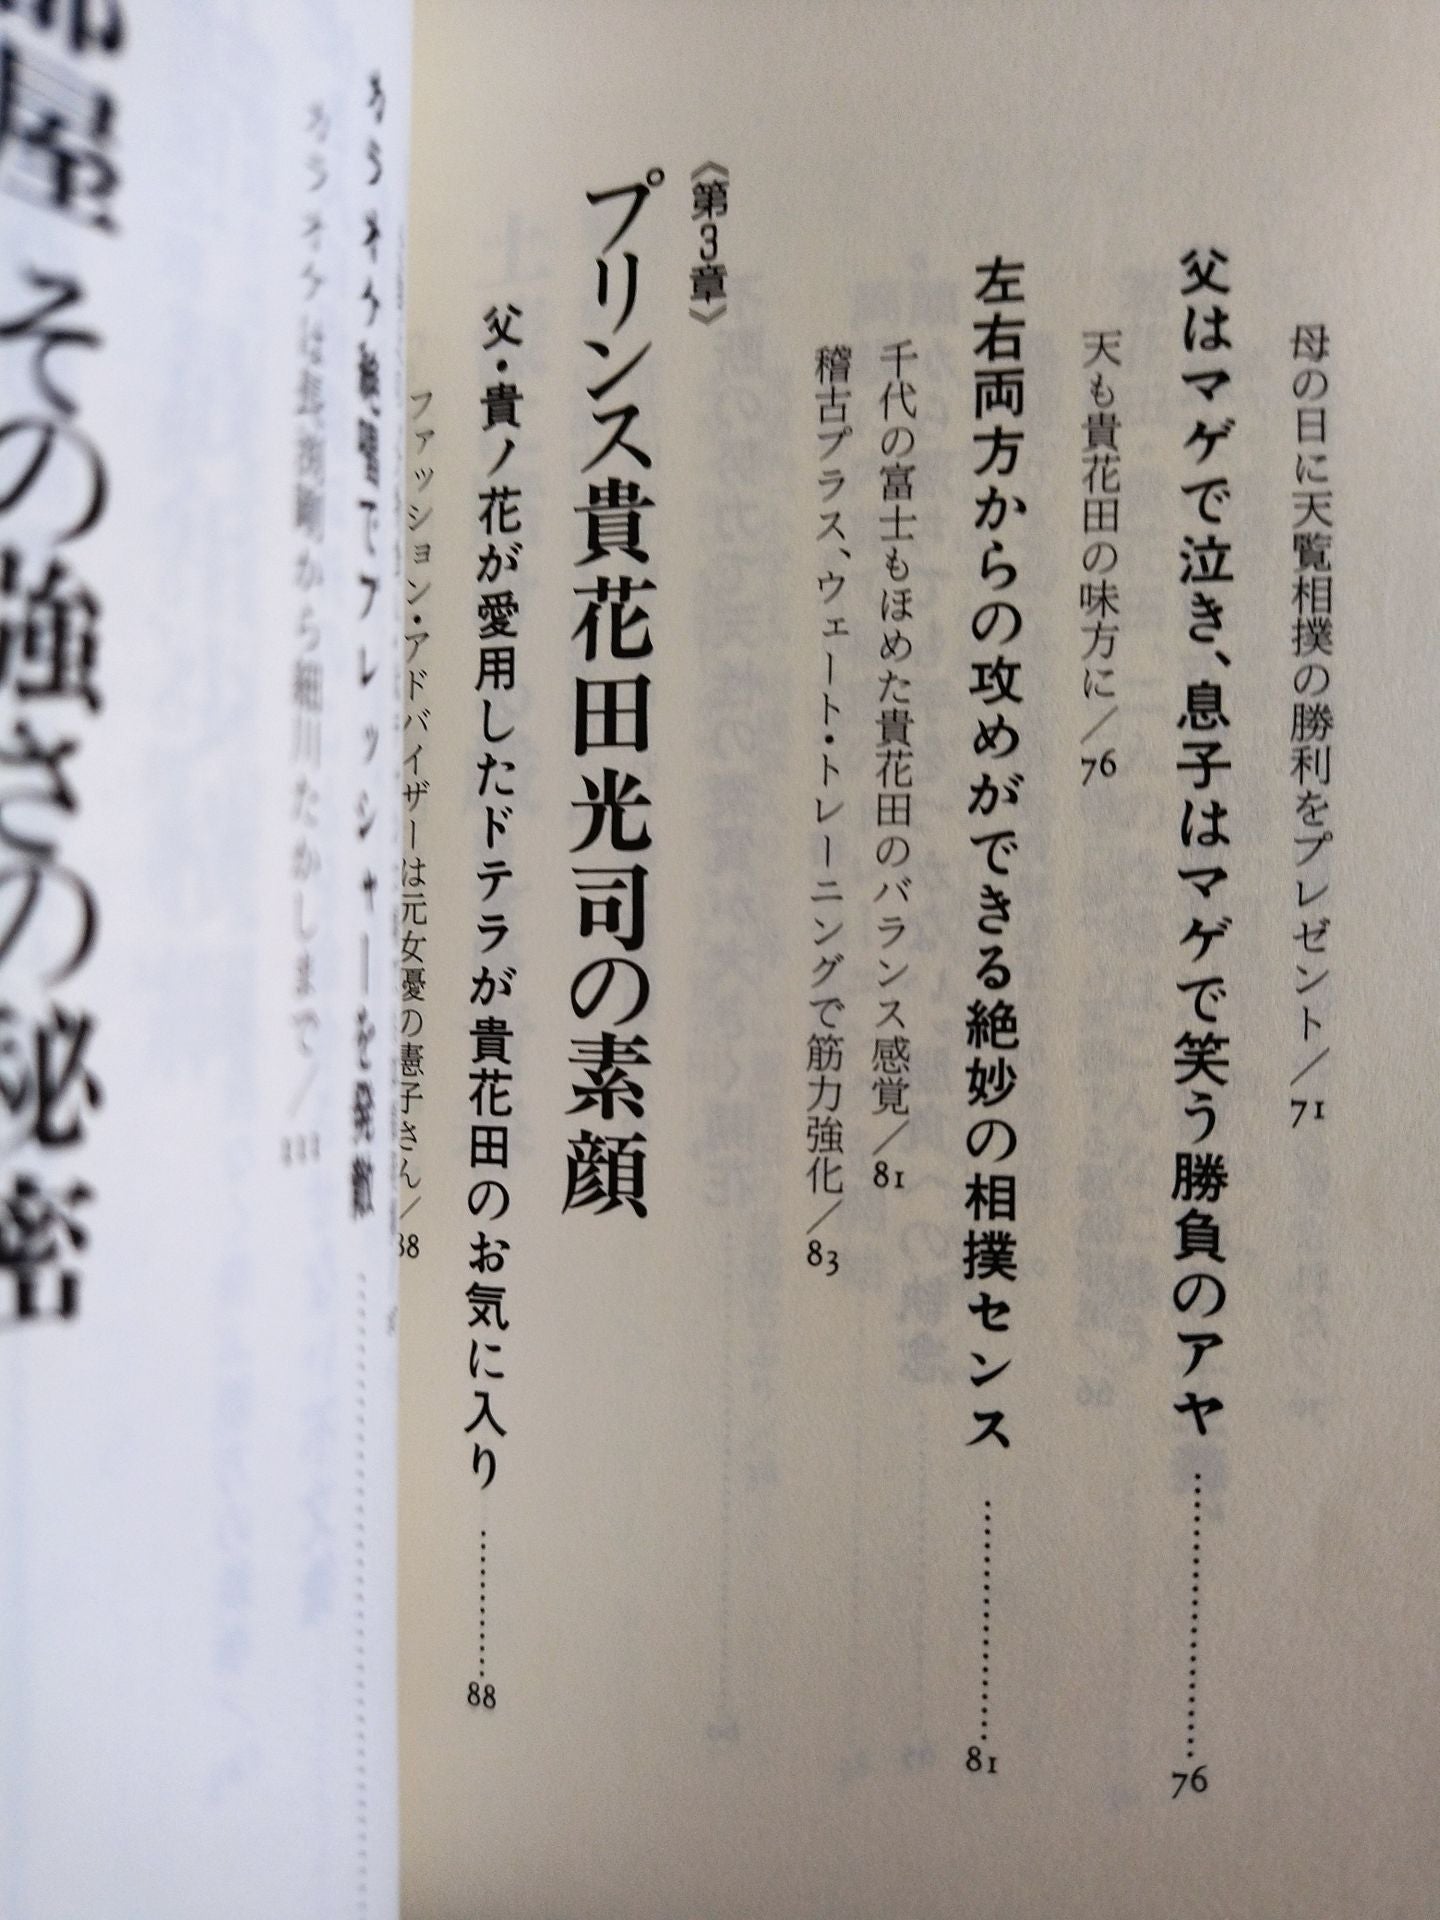 母の日に天覧相撲の勝利をプレゼント／71
父はマゲで泣き、息子はマゲで笑う勝負のアヤ…………76
天も貴花田の味方に／76
左右両方からの攻めができる絶妙の相撲センス…………81
千代の富士もほめた貴花田のバランス感覚／81
稽古プラス、ウェート・トレーニングで筋力強化／83
《第3章》
プリンス貴花田光司の素顔
父・貴ノ花が愛用したドテラが貴花田のお気に入り…………88
ファッション・アドバイザーは元女優の憲子さん／88
カラオケ絶唱でプレッシャーを発散
カラオケは長渕剛から細川たかしまで／111
部屋 その強さの秘密